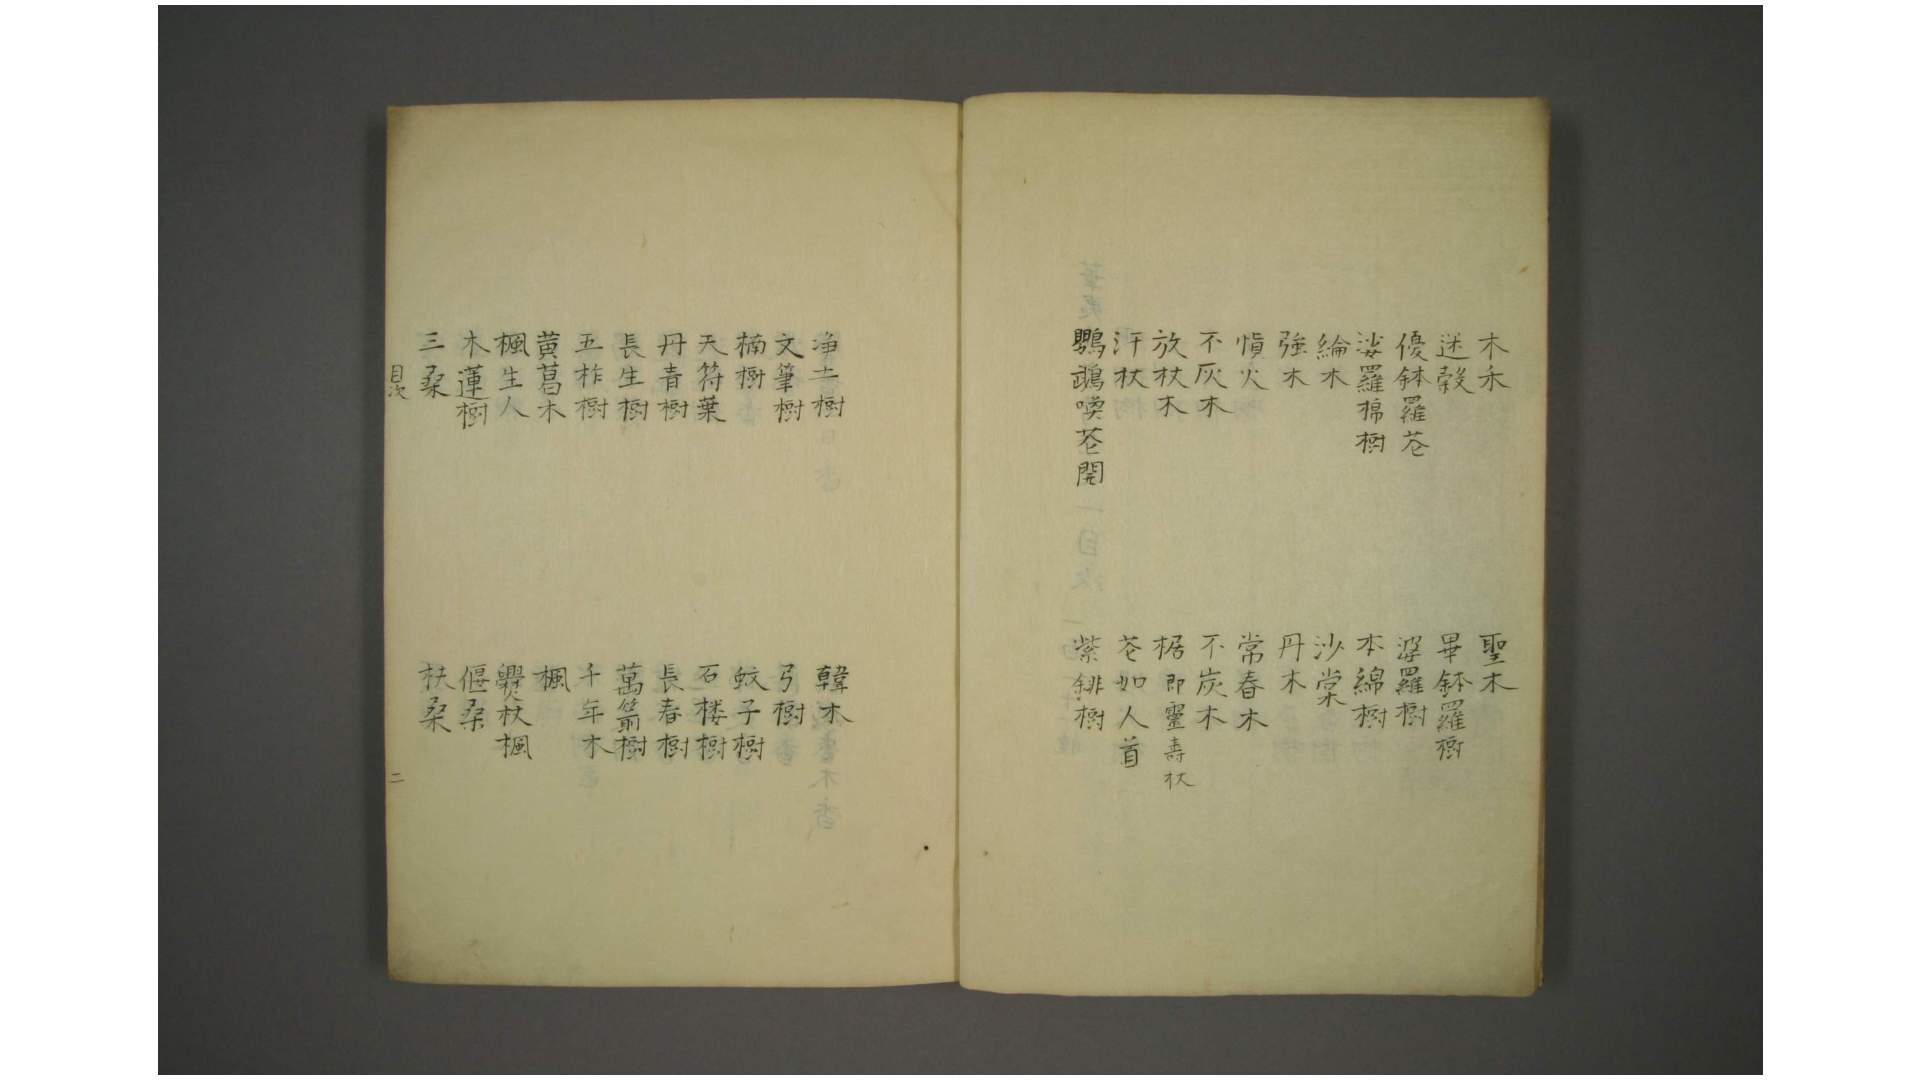 木禾 聖木
迷榖 畢鉢羅樹
優鉢羅花 婆羅樹
娑羅棉樹 木綿樹
綸木 沙棠
強木 丹木
慎火 常春木
不灰木 不炭木
放杖木 椐即靈壽杖
汗杖 花如人首
鸚鵡喚花開 紫樹
浄土樹 韓木
文筆樹 弓樹
楠樹 蚊子樹
天符葉 石楼樹
丹青樹 長春樹
長生樹 萬箭樹
五柞樹 千年木
黄葛木 楓
楓生人 爨杖楓
木蓮樹 偃桒
三桒 扶桒
目次 二